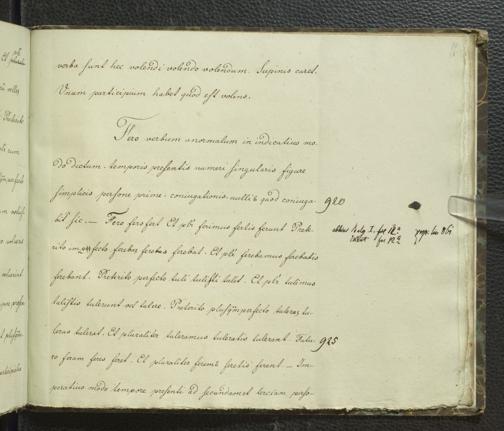 verba sunt hec volendi volendo volendum. Supinis caret.
Unum participium habet quod est volens.
Fero verbum anormalum in indicativo mo-
do dictum temporis presentis numeri singularis figure
simplicis persone prime coniugationis nulli quod coniuga- 920
tur sic. — Fero fers fert. Et pli ferimus fertis ferunt. Prete-
rito imperfecto ferebam ferebas ferebat. Et pli ferebamus ferebatis
ferebant. Preterito perfecto tuli tulisti tulit. Et pli tulimus
tulistis tulerunt vel tulere. Preterito plusqmperfecto tuleram tu-
leras tulerat. Et pluraliter tuleramus tuleratis tulerant. Futu- 925
ro feram feres feret. Et pluraliter feremus feretis ferent. — Im-
perativo modo tempore presenti ad secundam et terciam perso-